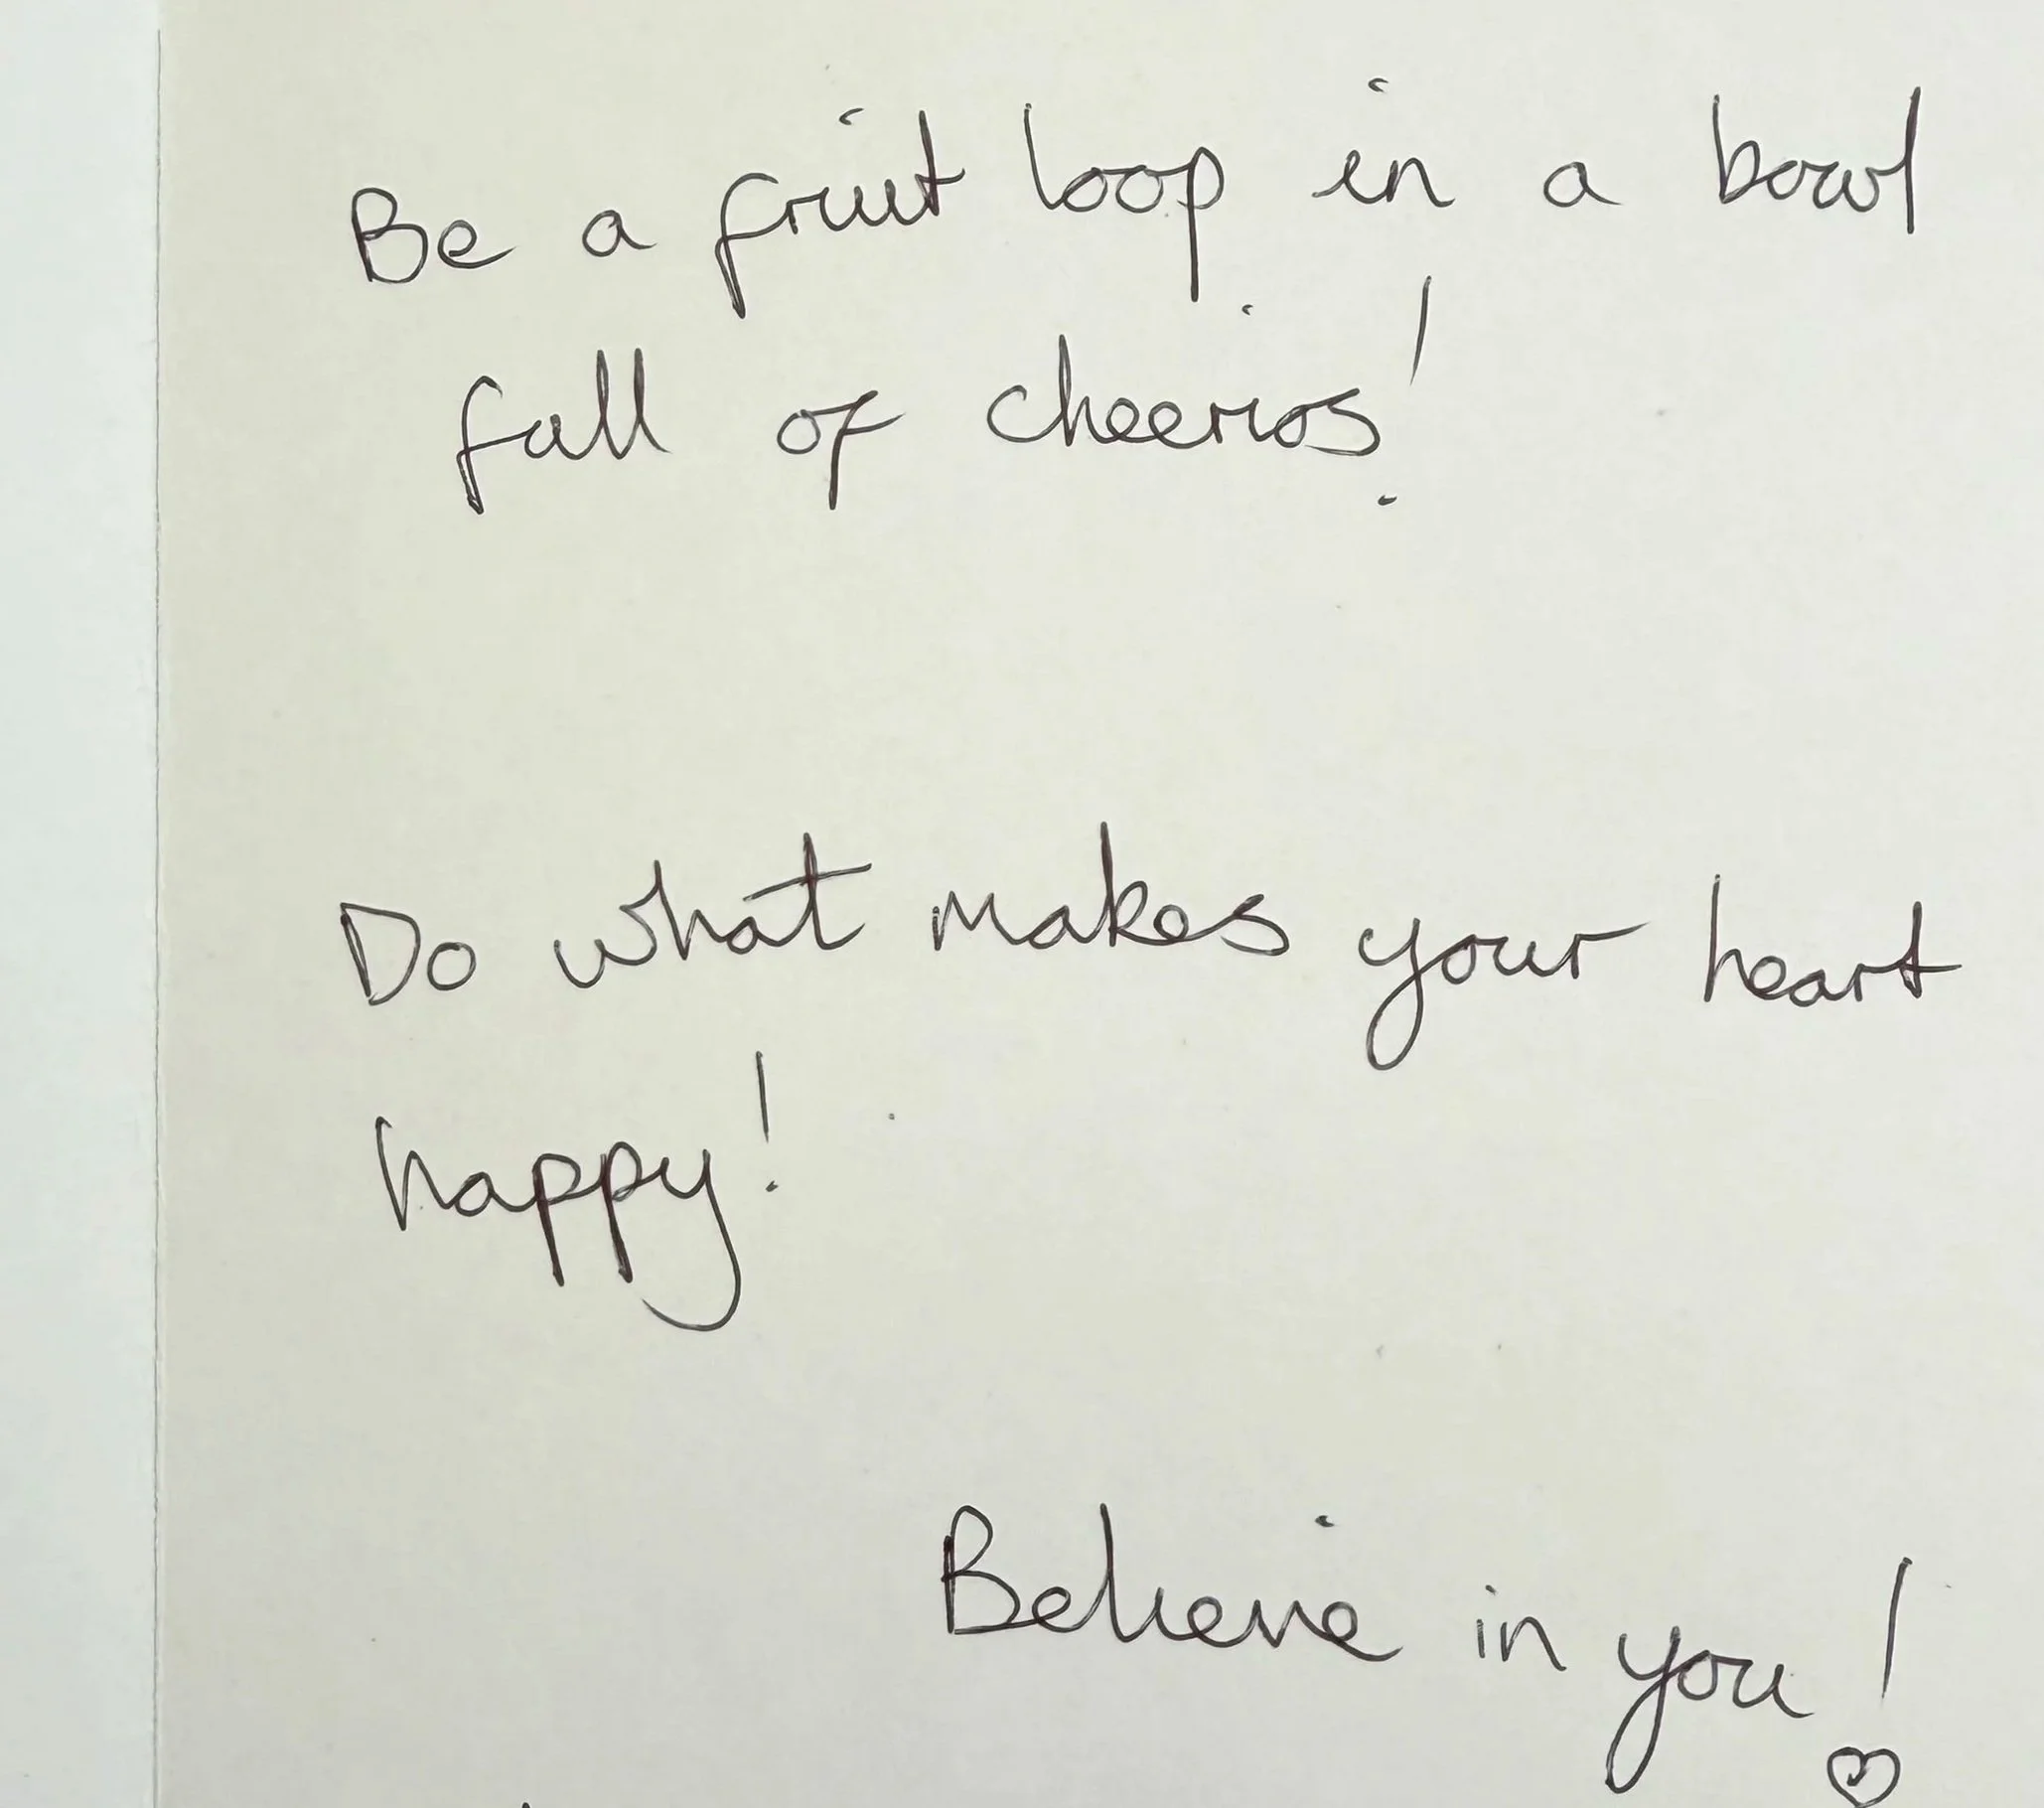 Be a fruit loop in a bowl
full of cheerios!
Do what makes your heart
happy!
Believe in you!
♡